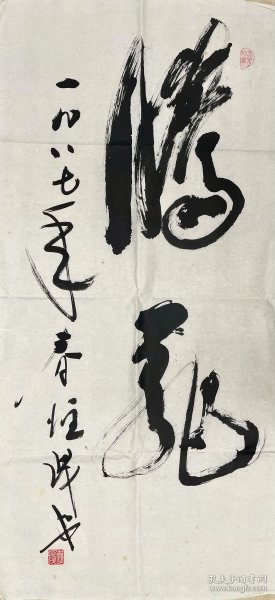 腾龙
一九八七年春恒
孔夫子旧书网